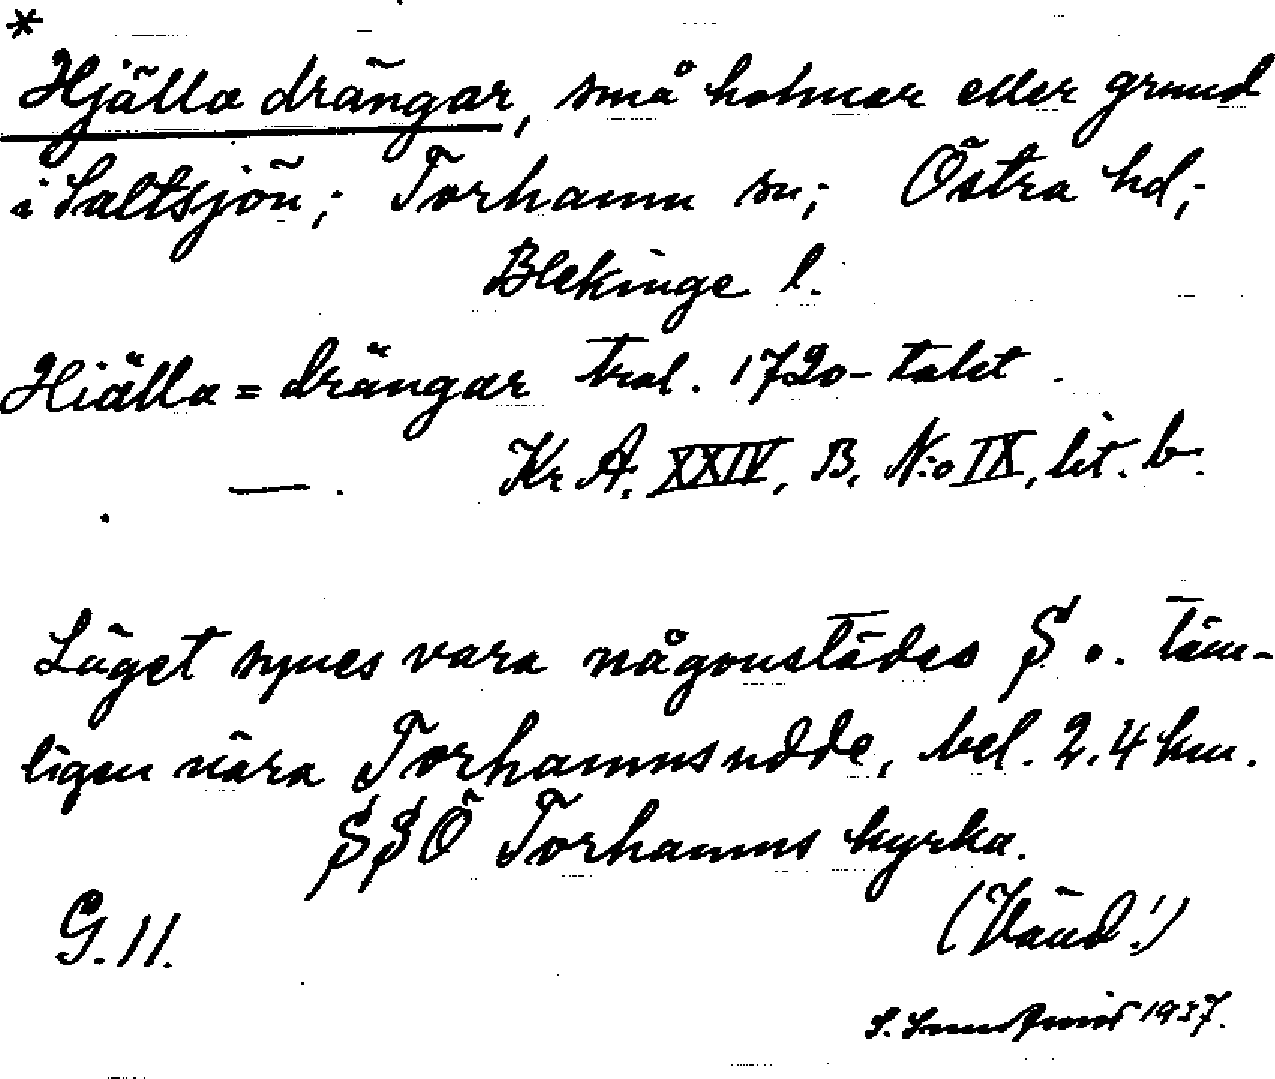 *
Hjälla drängar, små holmar eller grund
i Saltsjön; Torhamn sn; Östra hd;
Blekinge l.
Hiälla=drängar trol. 1720-talet.
— . Kr A. XXIV, B. N:o IX, lit. b.
Läget synes vara någonstädes S o. täm-
ligen nära Torhamnsudde, bel. 2.4 km.
SSÖ Torhamns kyrka.
G. 11. (Vänd!)
S. 1937.